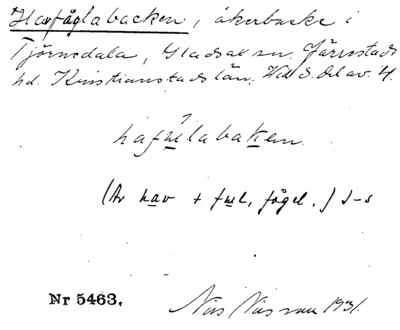 Havfåglabacken, åkerbacke i
Tjörnedala, Gladsax sn. Järrestads
hd. Kristianstads län. Till S. del av 4.
hafulabaken.
(Av hav + ful, fågel.) J-s
Nr 5463.
Nils 1931.